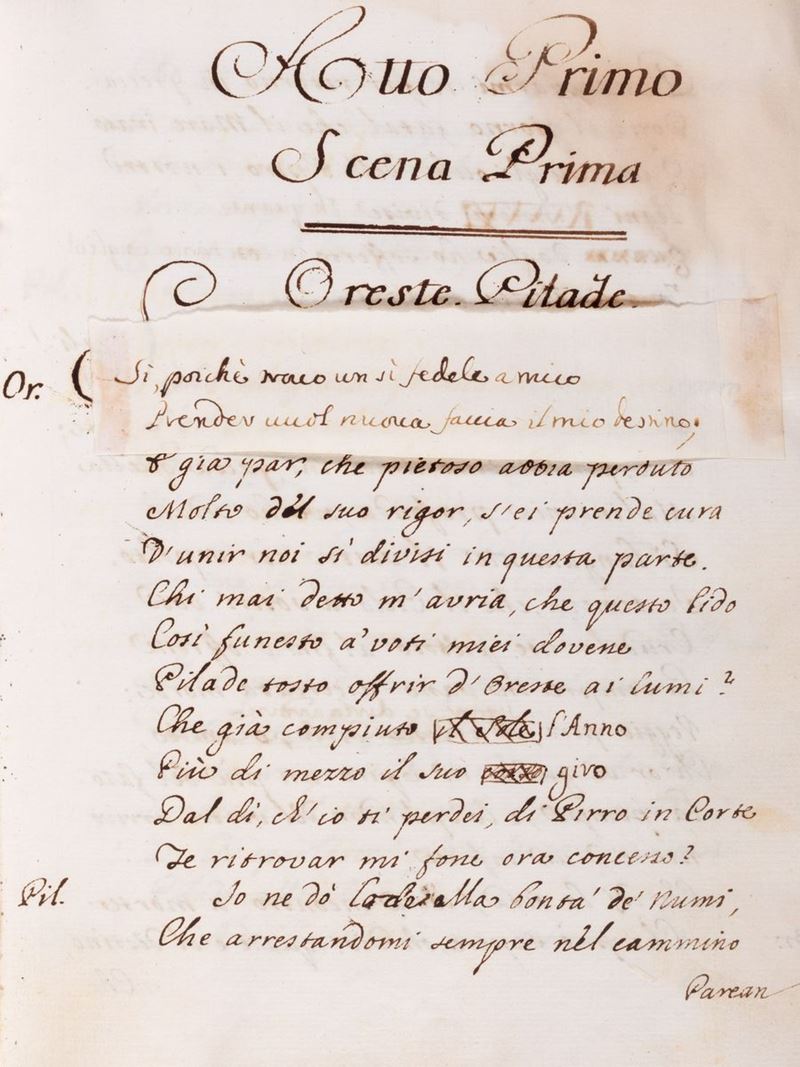 Atto Primo
Scena Prima
Oreste. Pilade.
Or. Si, poichè trovo un sì fedele amico
Prender vuol nuova faccia il mio destino;
E già par, che pietoso abbia perduto
Molto del suo rigor, s'ei prende cura
D'unir noi sì divisi in questa parte.
Chi mai detto m'avria, che questo lido
Così funesto a' voti miei dovesse
Pilade tosto offrir d'Oreste ai lumi?
Che già compiuto il Sole l'Anno
Più di mezzo il suo giro
Dal dì, ch'io ti perdei, di Pirro in Corte
Te ritrovar mi fosse ora concesso?
Pil. Io ne dò lode alla bontà de' Numi,
Che arrestandomi sempre nel cammino
Parean